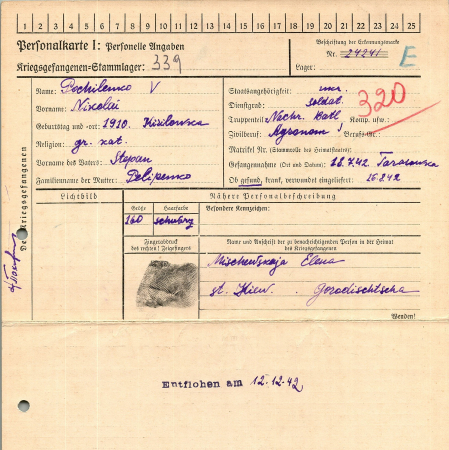 1 2 3 4 5 6 7 8 9 10 11 12 13 14 15 16 17 18 19 20 21 22 23 24 25
Personalkarte I: Personelle Angaben
Kriegsgefangenen-Stammlager: 339
Beschriftung der Erkennungsmarke
Nr. 24241
Lager:
E
Des Kriegsgefangenen
Name: Pochilenko V
Vorname: Nikolai
Geburtstag und -ort: 1910. Kisilowka
Religion: gr. kat.
Vorname des Vaters: Stepan
Familienname der Mutter: Pelipenko
Staatsangehörigkeit: ukr.
Dienstgrad: soldat.
Truppenteil: Nachr. Batl. Komp. usw.:
Zivilberuf: Agronom Berufs-Nr.:
320
Matrikel Nr. (Stammrolle des Heimatstaates):
Gefangennahme (Ort und Datum): 28.7.42. Tarasowka
Ob gesund, krank, verwundet eingeliefert: 16.8.42
Lichtbild
Nähere Personalbeschreibung
Größe
Haarfarbe
Besondere Kennzeichen:
160
schwarz
Fingerabdruck
des rechten! Zeigefingers
Name und Anschrift der zu benachrichtigenden Person in der Heimat
des Kriegsgefangenen
Mischewskaja Elena
st. Kiew. Gorodischtscha
Wenden!
Entflohen am 12.12.42